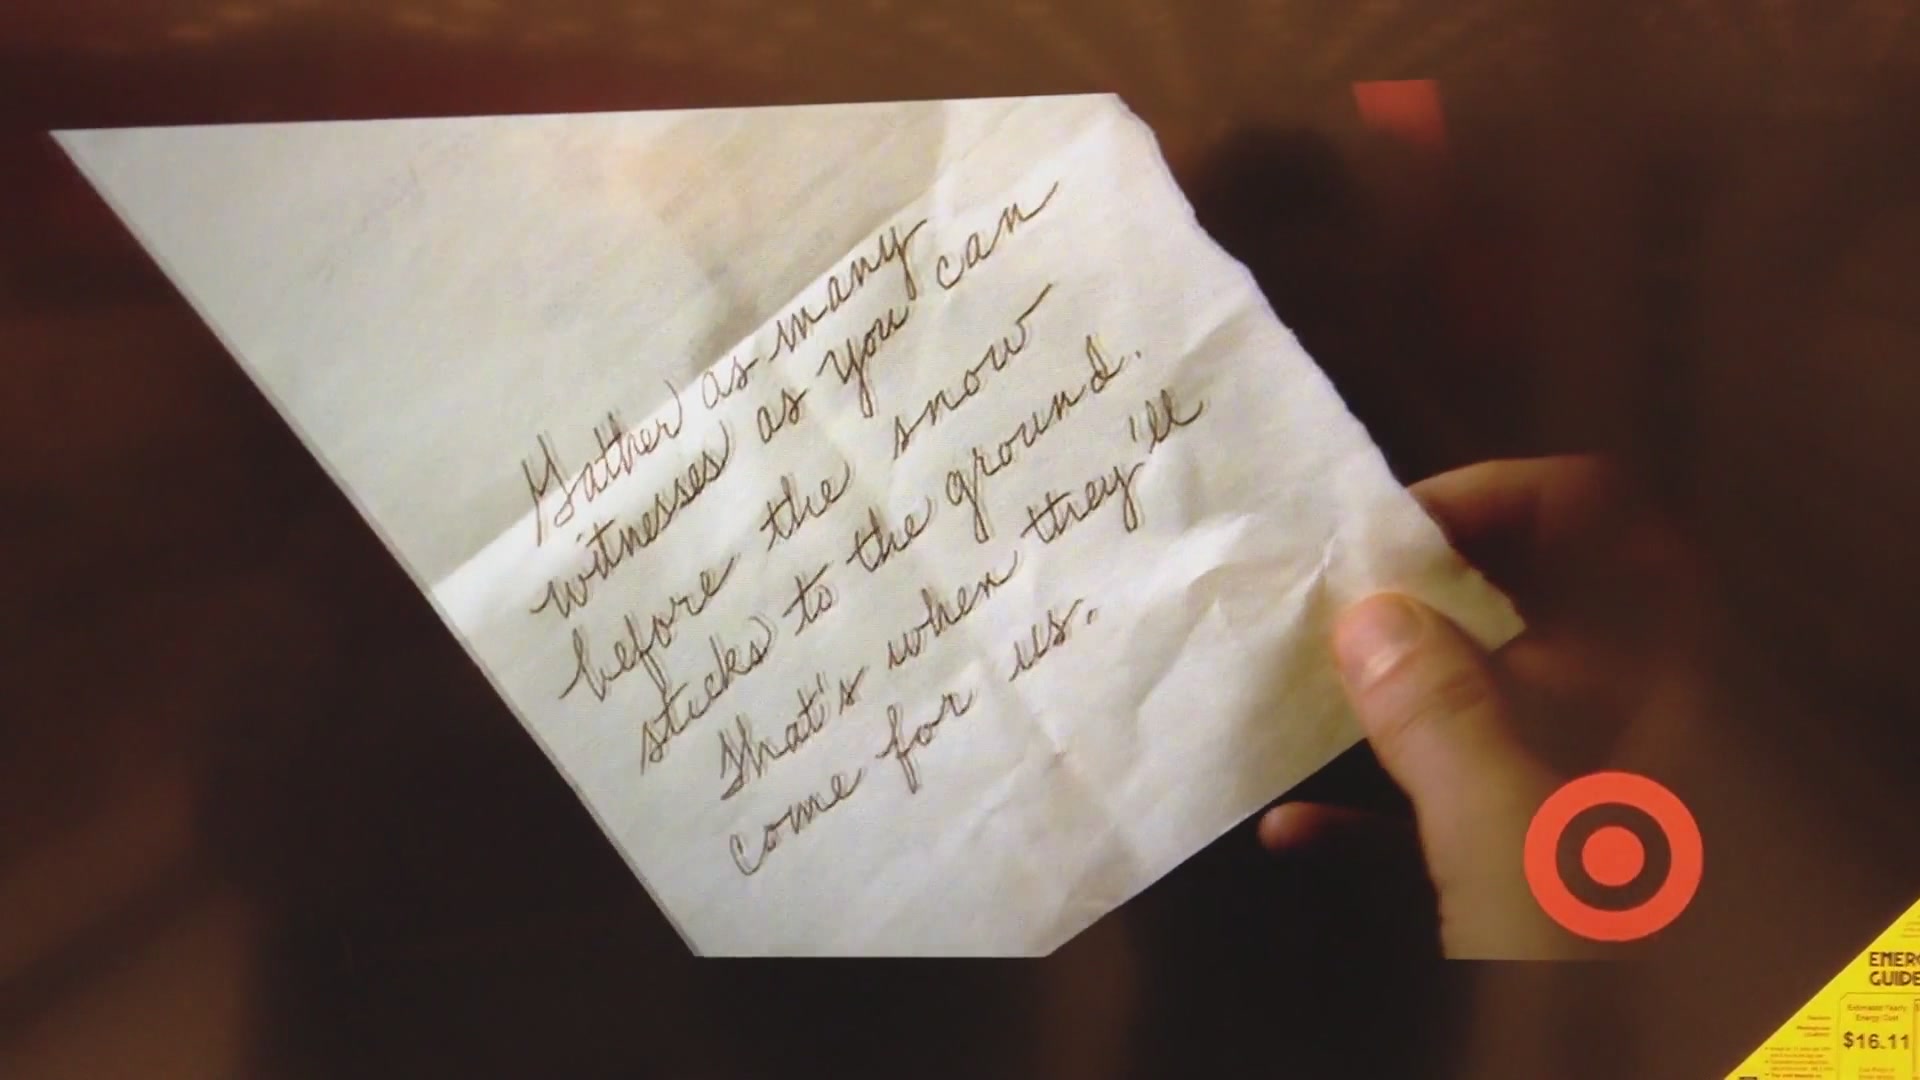 Gather as many
witnesses as you can
before the snow
sticks to the ground.
That's when they'll
come for us.
ENERG
GUIDE
Estimated Yearly
Energy Cost
$16.11